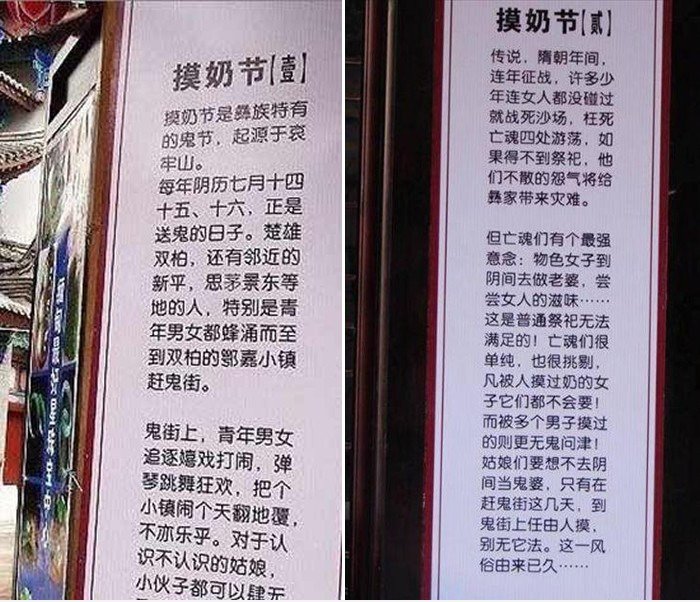 摸奶节【壹】
摸奶节是彝族特有
的鬼节，起源于哀
牢山。
每年阴历七月十四
十五、十六，正是
送鬼的日子。楚雄
双柏，还有邻近的
新平，思茅景东等
地的人，特别是青
年男女都蜂涌而至
到双柏的鄂嘉小镇
赶鬼街。
鬼街上，青年男女
追逐嬉戏打闹，弹
琴跳舞狂欢，把个
小镇闹个天翻地覆，
不亦乐乎。对于认
识不认识的姑娘，
小伙子都可以肆无
摸奶节【贰】
传说，隋朝年间，
连年征战，许多少
年连女人都没碰过
就战死沙场，枉死
亡魂四处游荡，如
果得不到祭祀，他
们不散的怨气将给
彝家带来灾难。
但亡魂们有个最强
意念：物色女子到
阴间去做老婆，尝
尝女人的滋味……
这是普通祭祀无法
满足的！亡魂们很
单纯，也很挑剔，
凡被人摸过奶的女
子它们都不会要！
而被多个男子摸过
的则更无鬼问津！
姑娘们要想不去阴
间当鬼婆，只有在
赶鬼街这几天，到
鬼街上任由人摸，
别无它法。这一风
俗由来已久……